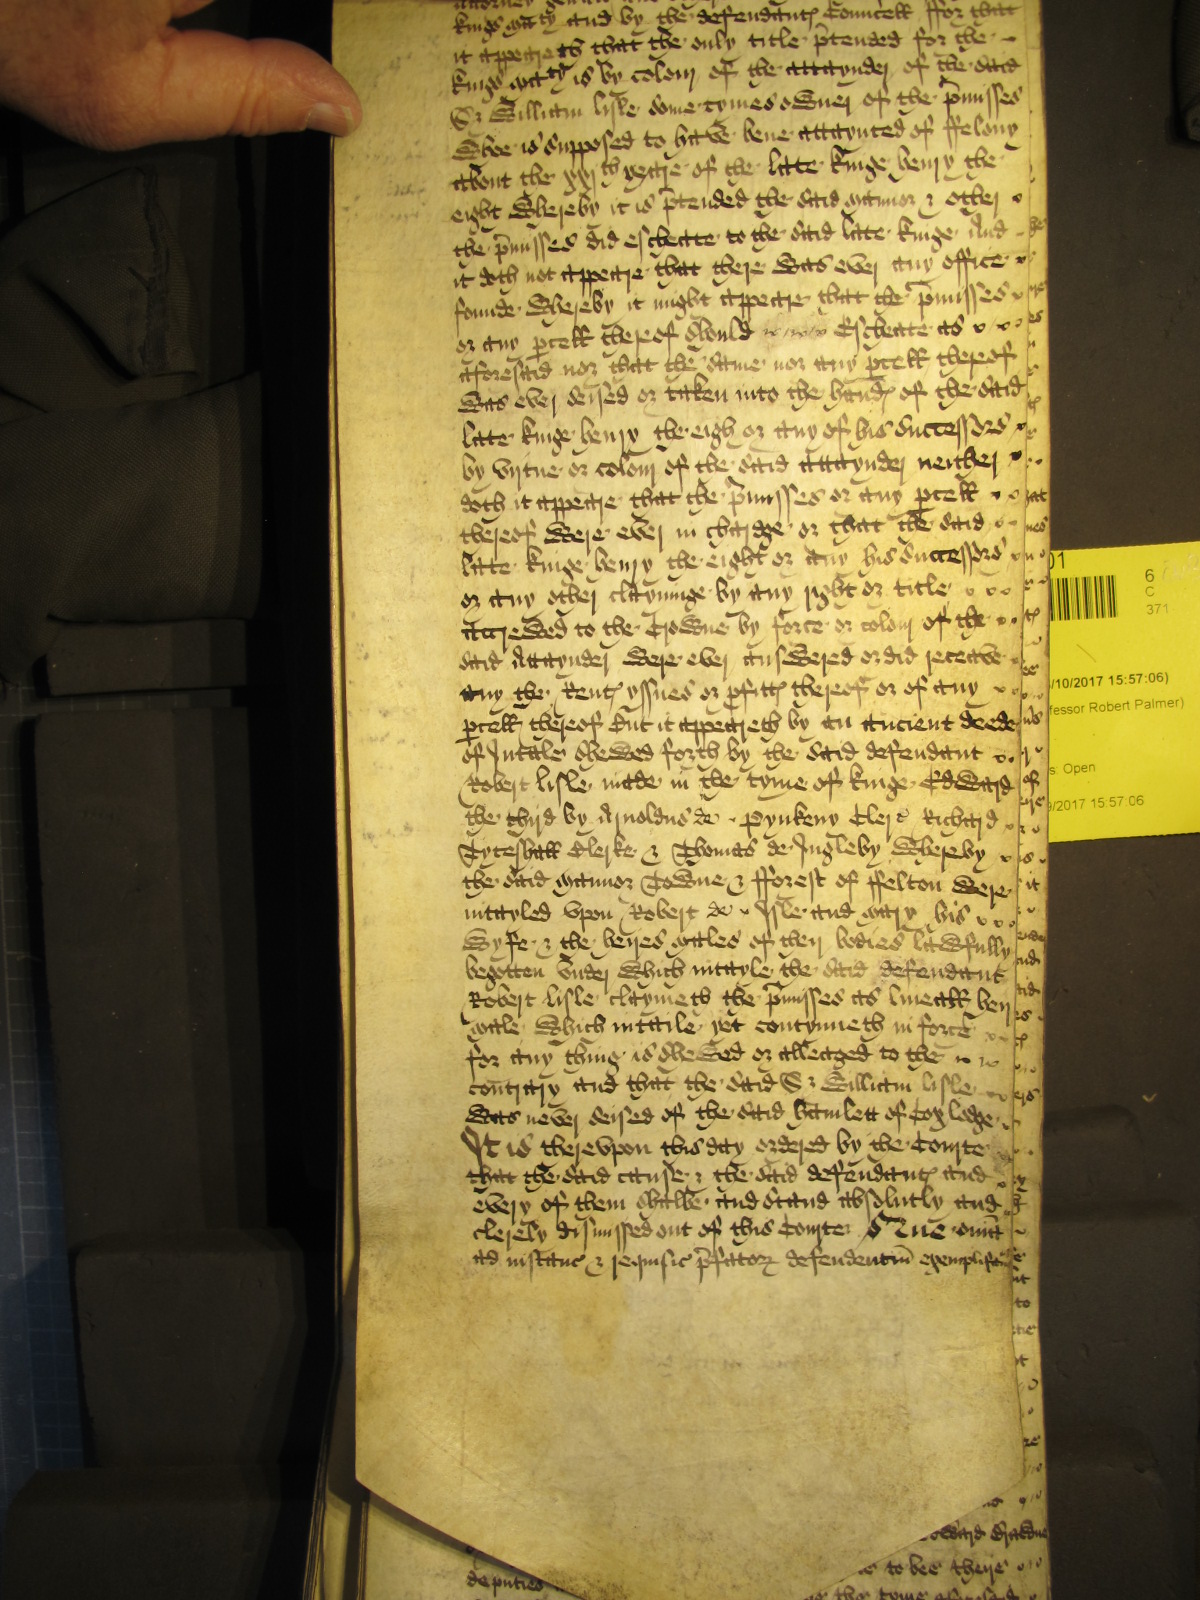 attorney
kings maty and by the defendants Councell ffor that
it appeareth that the only title ptended for the
kings maty is by colour of the attaynder of the said
Sr William lisle some tymes owner of the pmisses
Whoe is supposed to have bene attaynted of ffelony
about the xixth yeare of the late kinge henry the
eight Whereby it is ptended the said mannor & other
the pmisses did escheate to the said late kinge And
it doth not appeare that there was ever any office
founde Whereby it might appeare that the pmisses
or any pcell thereof should Escheate as
aforesaid nor that the same nor any pcell thereof
Was ever seised or taken into the hands of the said
late kinge henry the eigh or any of his successors
by virtue or colour of the said attaynder neither
doth it appeare that the pmisses or any pcell
thereof Were ever in chardge or that the said
late kinge henry the eight or any his successors
or any other clayminge by any right or title
accrewed to the Crowne by force or colour of the
said Attaynder Were ever answered or did receave
any the Rents yssues or pfitts thereof or of any
pcell thereof but it appeareth by an ancient deede
of Intale shewed forth by the said defendant
Robert lisle made in the tyme of kinge Edward
the third by Arnoldus de Pynkeny Clerc Richard
Tyteshall Clerke & Thomas de Ingleby Whereby
the said mannor Towne & fforest of ffelton Were
intayled upon Robert de Isle and mary his
Wyfe & the heires males of their bodies lawfully
begotten under Which intayle the said defendant
Robert lisle claymeth the pmisses as lineall heir
male Which intaile yet contynueth in force
for any thing is shewed or alleaged to the
contrary and that the said Sr William lisle
Was never seised of the said hamlett of Cox lodge
It is thereupon this day ordered by the Courte
that the said cause & the said defendants and
every of them shalbe and stand absolutly and
clerely dismissed out of this Courte Que omia
ad instanc & requisic pfator defendentiu exemplific
deputies
to bee there
01
6
C
371
/10/2017 15:57:06)
fessor Robert Palmer)
s: Open
9/2017 15:57:06